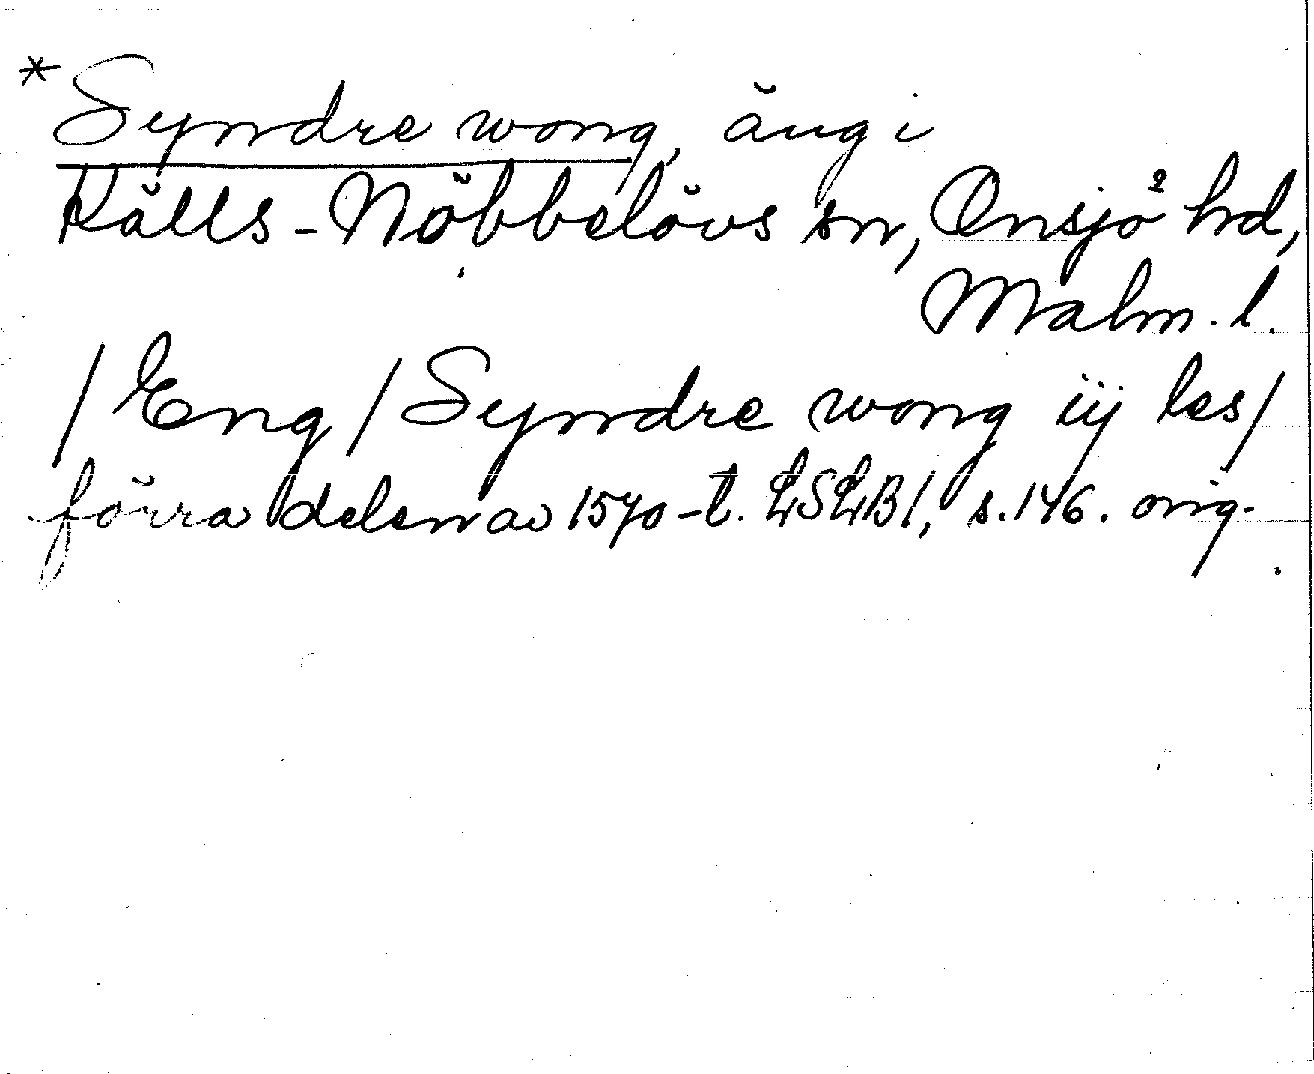 * Syndre wong, äng i
Källs-Nöbbelövs sn, Onsjö hd,
Malm. l.
/Eng/ Syndre wong iij les/
förra delen av 1570-t. LSLB1, s. 146. orig.